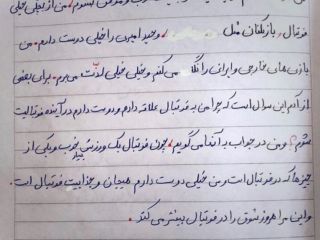 فوتبال، بازیکنان مثل وحید امیری را خیلی دوست دارم. من
بازی های خارجی و ایرانی را نگاه می کنم و خیلی خیلی لذت می برم. برای بعضی
از آدم این سوال است که چرا من به فوتبال علاقه دارم و دوست دارم در آینده فوتبالیست
شوم؟ و من در جواب به آنها می گویم، چون فوتبال یک ورزش خوب و یکی از
چیزها که در فوتبال است و من خیلی دوست دارم هیجان و جذابیت فوتبال است.
و این مرا هر روز شوق را در فوتبال بیشتر می کند.